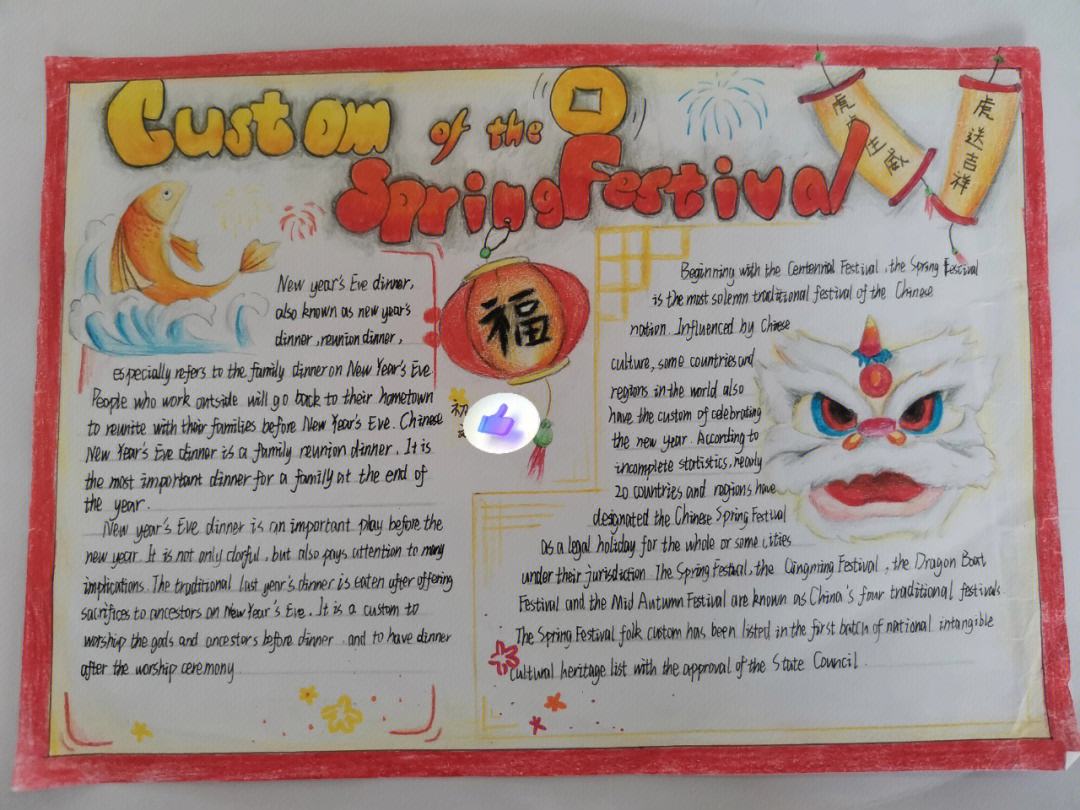 Custom of the
Spring Festival
虎 生威
虎送吉祥
福
初
New year's Eve dinner,
also known as new year's
dinner, reunion dinner,
especially refers to the family dinner on New Year's Eve
People who work outside will go back to their hometown
to reunite with their families before New Year's Eve. Chinese
New Year's Eve dinner is a family reunion dinner. It is
the most important dinner for a family at the end of
the year.
New year's Eve dinner is an important play before the
new year. It is not only clorful, but also pays attention to many
implications. The traditional last year's dinner is eaten after offering
sacrifices to ancestors on New Year's Eve. It is a custom to
worship the gods and ancestors before dinner and to have dinner
after the worship ceremony
Beginning with the Centennial Festival, the Spring Festival
is the most solemn traditional festival of the Chinese
nation. Influenced by Chinese
culture, some countries and
regions in the world also
have the custom of celebrating
the new year. According to
incomplete statistics, nearly
20 countries and regions have
designated the Chinese Spring Festival
as a legal holiday for the whole or some cities
under their jurisdiction The Spring Festival, the Qingming Festival, the Dragon Boat
Festival and the Mid Autumn Festival are known as China's four traditional festivals.
The Spring Festival folk custom has been listed in the first batch of national intangible
cultural heritage list with the approval of the State Council.